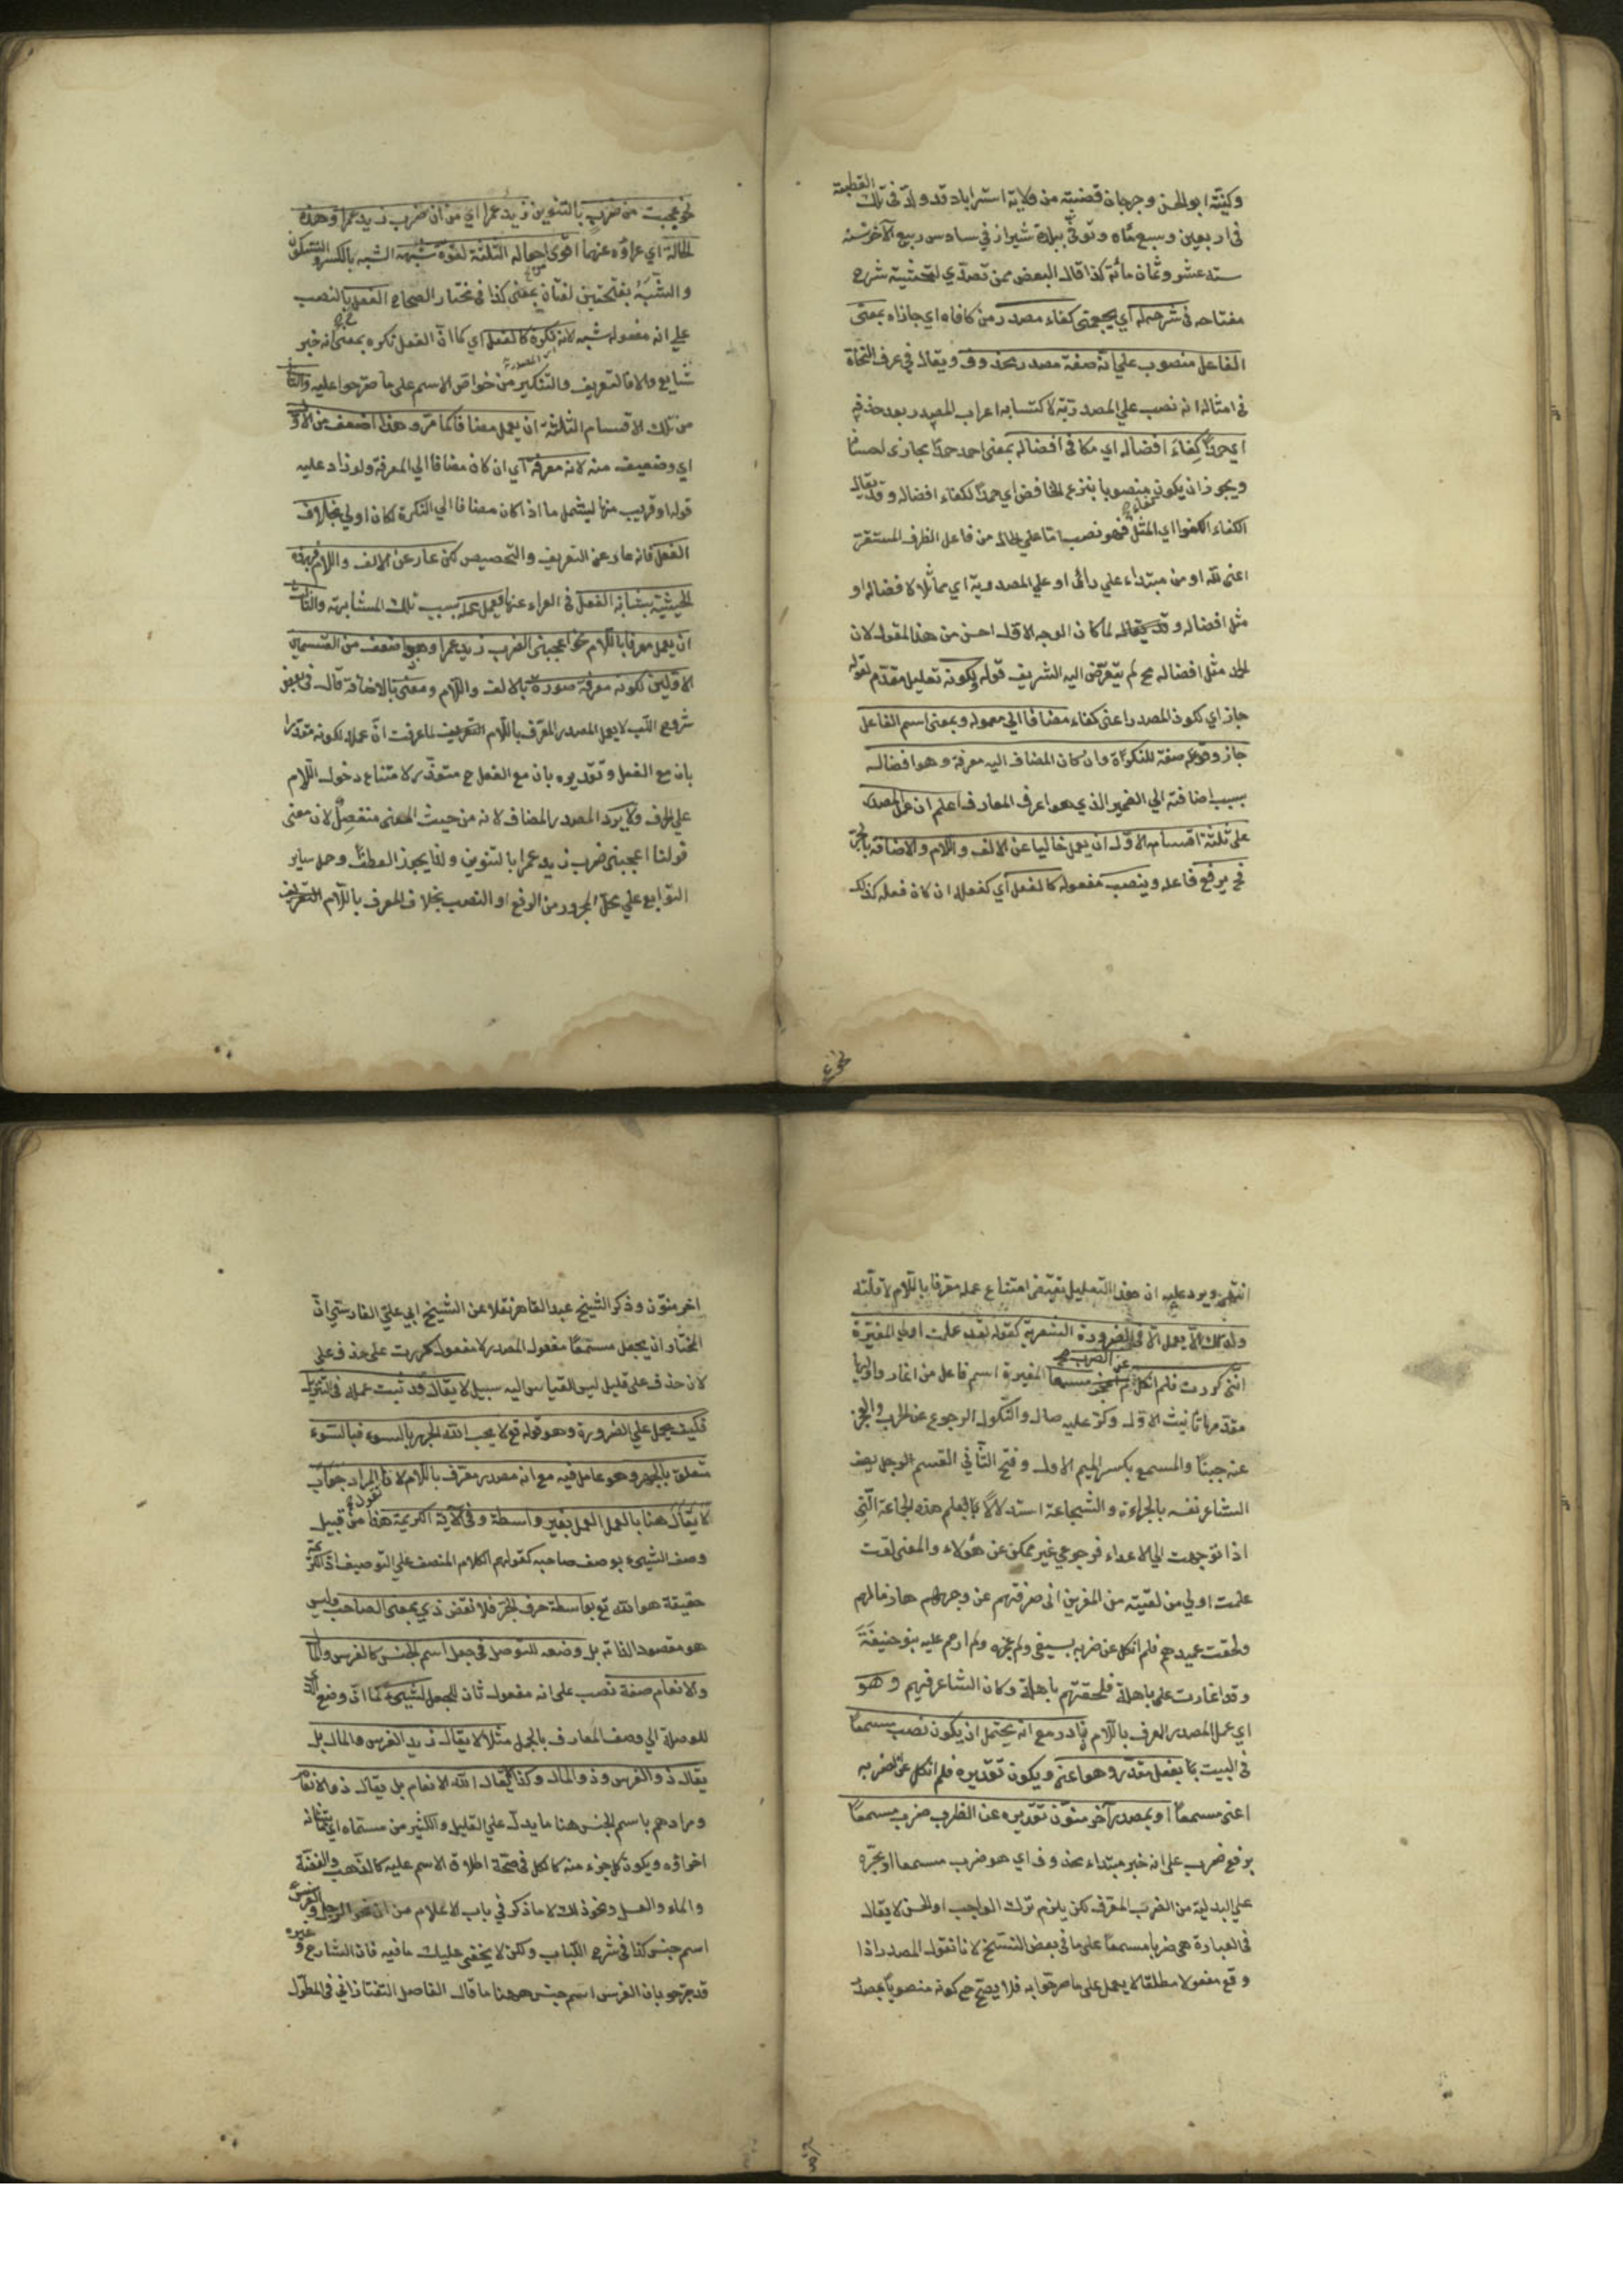 وكنيته ابو الحسن وجرجان قصبته من ولاية استراباد قد ولد في تلك القطيعة
في اربعين وسبع مائة وتوفي ببلدة شيراز في سادس ربيع الآخر سنة
ستة عشر وثمان مائة كذا قال البعض ممن تصدي لتحشية شرح
مفتاحه في شرحه اي بمعنى كفاء مصدر من كافاه اي جازاه بمعنى
الفاعل منصوب علي انه صفة مصدر محذوف ويقال في عرف النحاة
في امثاله انه نصب علي المصدرية لاكتسابه اعراب المصدر بعد حذفه
اي حمدًا كِفاءَ افضاله اي مكافي افضاله بمعنى احمد حمدًا يجازى احسانا
ويجوز ان يكون منصوبا بنزع الخافض اي حمدًا لكفاء افضاله وقد يقال
الكفاء الكفو اي المثل فهو نصب اما علي الحال من فاعل الظرف المستقر
اعنى لله او من مبتداء علي رائى او علي المصدرية اي مماثلا لافضاله او
مثل افضاله وقد يقال لما كان الوجه الاول احسن من هذا المقول لان
الحمد مثل افضاله مح لم يتعرض اليه الشريف قوله لكونه تعليل مقدم لقوله
جاز اي لكون المصدر اعنى كفاء مضافا الي معموله وبمعنى اسم الفاعل
جاز وقوعه صفة للنكرة وان كان المضاف اليه معرفة وهو افضاله
بسبب اضافته الي الضمير الذي هو اعرف المعارف اعلم ان عمل المصدر
على ثلثة اقسام الاول ان يعمل خاليا عن الالف واللام والاضافة بالجر
فح يرفع فاعله وينصب مفعوله كالفعل اي كفعله ان كان فعله كذلك
نحو عجبت
نحو عجبت من ضرب بالتنوين زيد عمرا اي من ان ضرب زيد عمرا وهذه
الحالة اي عراؤه عنهما اقوى احواله الثلثة لقوة شبهه الشبه بالكسر والسكون
والشبَه بفتحتين لغتان بمعنى كذا في مختار الصحاح الفعل بالنصب
على انه مفعول شبه لانه نكرة كالفعل اي كما ان الفعل نكره بمعنى انه خبر
شايع والا فالتعريف والتنكير من خواص الاسم على ما صرحوا عليه والثاني
من تلك الاقسام الثلثة ان يعمل مضافا كما مر وهذا اضعف من الاول
اي وضعيف منه لانه معرفة اي ان كان مضافا الي المعرفة ولو زاد عليه
قوله او قريب منها ليشمل ما اذا كان مضافا الي النكرة لكان اولي بخلاف
الفعل فانه عار عن التعريف والتخصيص لكن عار عن الالف واللام فبهذه
الحيثية يشابه الفعل في العراء عنها فيعمل عمله بسبب تلك المشابهة والثالث
ان يعمل معرفا باللام نحو اعجبنى الضرب زيد عمرا وهو اضعف من القسمين
الاولين لكونه معرفة صورة بالالف واللام ومعنى بالاضافة قال في بعض
شروح اللب لا يعمل المصدر المعرف باللام التعريف لما عرفت ان عمله لكونه مقدرا
بان مع الفعل وتقديره بان مع الفعل ح متعذر لامتناع دخول اللام
علي الحرف ولا يرد المصدر المضاف لانه من حيث المعنى منفصل لان معنى
قولنا اعجبنى ضرب زيد عمرا بالتنوين ولذا يجوز العطف وحمل ساير
التوابع علي محل المجرور من الرفع او النصب بخلاف المعرف باللام التعريف
انتهى ويرد عليه ان هذا التعليل يقتضي امتناع عمله معرفا باللام لا قلته
ولذلك لا يعمل الا في الضرورة الشعرية كقوله لقد علمت اولي المغيرة
اننى كررت فلم انكل عن الضرب مسمعا المغيرة اسم فاعل من اغار واوليها
مقدمها تانيث الاول وكر عليه صال والنكول الرجوع عن الحرب والعجز
عنه جبنًا والمسمع بكسر الميم الاول وفتح الثاني القسم الرجل يصف
الشاعر نفسه بالجراءة والشجاعة استدلالًا بعلم هذه الجماعة التي
اذا توجهت الي الاعداء فرجوعي غير ممكن عن هؤلاء والمعنى لقد
علمت اولي من لقيته من المغيرين انى صرفتهم عن وجوههم هازما لهم
ولحقت عميدهم فلم انكل عن ضربه بسيفى ولم عجزه بنو حنيفة
وقد اغارت على باهلة فلحقتهم باهلة وكان الشاعر فيهم وهو
اي عمل المصدر المعرف باللام نادر مع انه يحتمل ان يكون نصب مسمعًا
في البيت بما بفعل مقدر وهو اعني ويكون تقديره فلم انكل عن الضرب به
اعنى مسمعًا او بمصدر آخر منون تقديره عن الضرب ضرب مسمعًا
برفع ضرب على انه خبر مبتداء محذوف اي هو ضرب مسمعا او بجره
على البدلية من الضرب المعرف لكن يلزم ترك الواجب او الحسن لا يقال
في العبارة هي ضربا مسمعًا على ما في بعض النسخ لانا نقول المصدر اذا
وقع مفعولا مطلقا لا يعمل على ما صرحوا به فلا يصح ح كونه منصوبا بمصدر
اخر منون وذكر الشيخ عبد القاهر نقلا عن الشيخ ابي علي الفارسي ان
المختار ان يجعل مستمعًا مفعول المصدر لا مفعول كررت على حذف على
لان حذف على قليل ليس القياس اليه سبيل لا يقال قد ثبت عمله في التنزيل
فكيف يحمل علي الضرورة وهو قوله تع لا يحب الله الجهر بالسوء فبالسوء
متعلق بالجهر وهو عامل فيه مع انه مصدر معرف باللام لان المراد جوابً
لا يقال نقول هنا بالعمل العمل بغير واسطة وفي الآية الكريمة هذا من قبيل
وصف الشيء بوصف صاحبه كقولهم الكلام المنصف علي التوصيف اذ
حقيقة هو الله تع بواسطة حرف الجر فلا نقض ذي بمعنى الصاحب وليس
هو مقصود الذاته بل وضعه للتوصل في جعل اسم الجنس كالفرس والمال
والانعام صفة نصب على انه مفعول ثان للجعل لشيء كما ان وضع الذي
للوصلة الي وصف المعارف بالجمل مثلا لا يقال زيد الفرس والمال بل
يقال ذو الفرس وذو المال وكذا لا يقال الله الانعام بل يقال ذو الانعام
ومرادهم باسم الجنس هنا ما يدل علي القليل والكثير من مسماه اي
اجزاؤه ويكون كل جزء منه كالكل في صحة اطلاق الاسم عليه كالذهب والفضة
والماء والعسل ونحو ذلك لا ما ذكر في باب الاعلام من ان نحو الرجل والفرس
اسم جنس كذا في شرح اللباب ولكن لا يخفى عليك ما فيه فان الشارح وغيره
قد صرحوا بان الفرس اسم جنس ههنا ما قال الفاضل التفتازاني في المطول